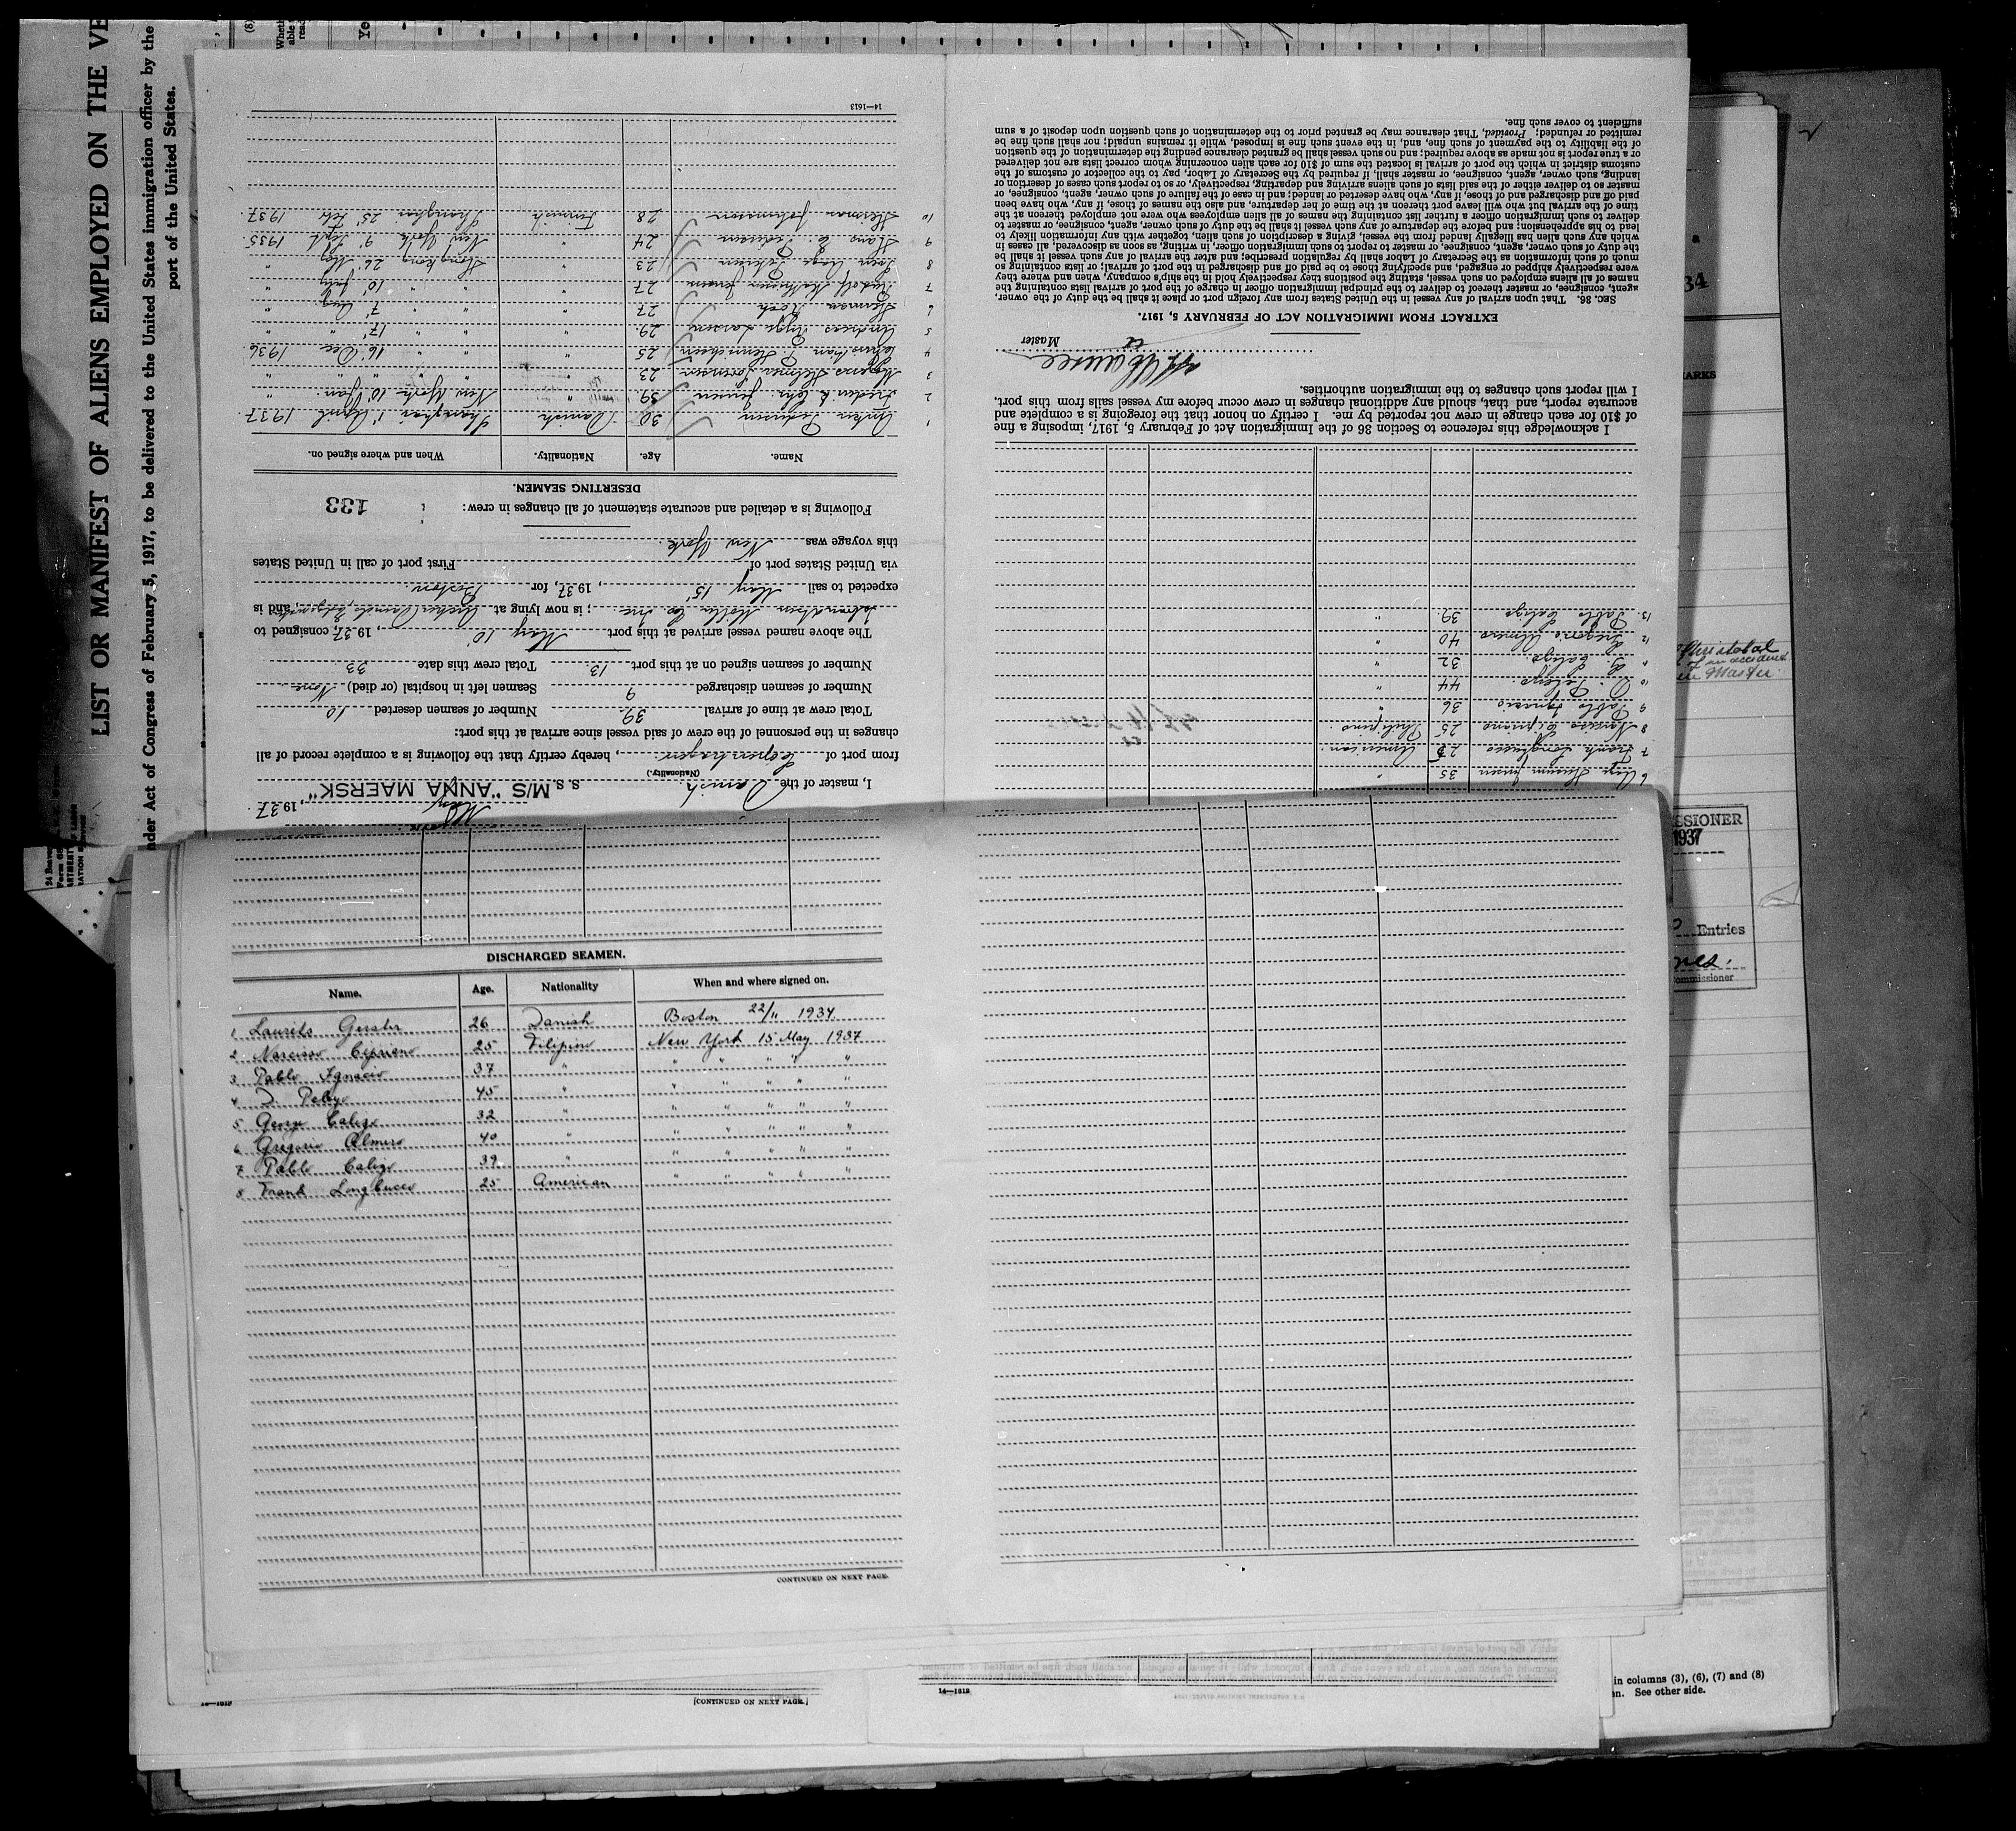 LIST OR MANIFEST OF ALIENS EMPLOYED ON THE VE
nder Act of Congress of February 5, 1917, to be delivered to the United States immigration officer by the
port of the United States.
M/S "ANNA MAERSK"
May, 1937
I, master of the Danish S. S.
(Nationality.)
from port of Copenhagen, hereby certify that the following is a complete record of all
changes in the personnel of the crew of said vessel since arrival at this port:
Total crew at time of arrival 39. Number of seamen deserted 10
Number of seamen discharged 9 Seamen left in hospital (or died) None
Number of seamen signed on at this port 13 Total crew this date 33
The above named vessel arrived at this port May 10', 1937, consigned to
Moller Co Inc; is now lying at and is
expected to sail May 15', 1937, for Boston.
via United States port of First port of call in United States
this voyage was New York.
Following is a detailed and accurate statement of all changes in crew: 133
DESERTING SEAMEN.
Name. Age. Nationality. When and where signed on.
1 Pedersen 30 Danish Shanghai 1' April 1937
2 Jensen 39. " New York 10' Jan. "
3 Mogens Helmer Sorensen 23 " " " " "
4 Christian P. Henrichsen 25 " " " 16' Dec 1936
5 Andreas Larsen 29. " " " 17' " "
6 Herman Koch 27 " " 7' Aug "
7 Rudolf 27 " " 10' July "
8 Aage Petersen 23 " Hongkong 26 May "
9 Hans 24 " New York 9' Sept. 1935
10 Herman Johansson 28 Finnish Shanghai 25' Febr 1937.
14—1613
6 Aage Jensen 35 "
7 Frank Longbucco 25 American.
8 Narciso Cipriano 25 Philipino.
9 Pablo Ignacio 36 "
10 D. Pelayo. 44 "
" G. Caligo. 32 "
12 Gregorio Almero 40 "
13. Pablo Caligo 39. "
I acknowledge this reference to Section 36 of the Immigration Act of February 5, 1917, imposing a fine
of $10 for each change in crew not reported by me. I certify on honor that the foregoing is a complete and
accurate report, and that, should any additional changes in crew occur before my vessel sails from this port,
I will report such changes to the immigration authorities.
Master
EXTRACT FROM IMMIGRATION ACT OF FEBRUARY 5, 1917.
SEC. 36. That upon arrival of any vessel in the United States from any foreign port or place it shall be the duty of the owner,
agent, consignee, or master thereof to deliver to the principal immigration officer in charge of the port of arrival lists containing the
names of all aliens employed on such vessel, stating the positions they respectively hold in the ship's company, when and where they
were respectively shipped or engaged, and specifying those to be paid off and discharged in the port of arrival; or lists containing so
much of such information as the Secretary of Labor shall by regulation prescribe; and after the arrival of any such vessel it shall be
the duty of such owner, agent, consignee, or master to report to such immigration officer, in writing, as soon as discovered, all cases in
which any such alien has illegally landed from the vessel, giving a description of such alien, together with any information likely to
lead to his apprehension; and before the departure of any such vessel it shall be the duty of such owner, agent, consignee, or master to
deliver to such immigration officer a further list containing the names of all alien employees who were not employed thereon at the
time of the arrival but who will leave port thereon at the time of her departure, and also the names of those, if any, who have been
paid off and discharged and of those, if any, who have deserted or landed; and in case of the failure of such owner, agent, consignee, or
master so to deliver either of the said lists of such aliens arriving and departing, respectively, or so to report such cases of desertion or
landing, such owner, agent, consignee, or master shall, if required by the Secretary of Labor, pay to the collector of customs of the
customs district in which the port of arrival is located the sum of $10 for each alien concerning whom correct lists are not delivered
or a true report is not made as above required; and no such vessel shall be granted clearance pending the determination of the question
of the liability to the payment of such fine, and, in the event such fine is imposed, while it remains unpaid; nor shall such fine be
remitted or refunded; Provided, That clearance may be granted prior to the determination of such question upon deposit of a sum
sufficient to cover such fine.
DISCHARGED SEAMEN.
Name. Age. Nationality When and where signed on.
1 Laurits Gerster 26 Danish Boston 22/11 1934
2 Narcisso Cipriano 25 Filipino New York 15 May 1937
3 Pablo Ignacio 37 " " " " " "
4 D. Pelayo 45 " " " " " "
5 George Caligo 32 " " " " " "
6 Gregorio Almero 40 " " " " " "
7 Pablo Caligo 39 " " " " " "
8 Frank Longbucco 25 American " " " " "
CONTINUED ON NEXT PAGE.
[CONTINUED ON NEXT PAGE.]
14—1612
34
ARKS
Christobal
of an accident
Master
SSIONER
1937
Entries
ommissioner
in columns (3), (6), (7) and (8)
en. See other side.